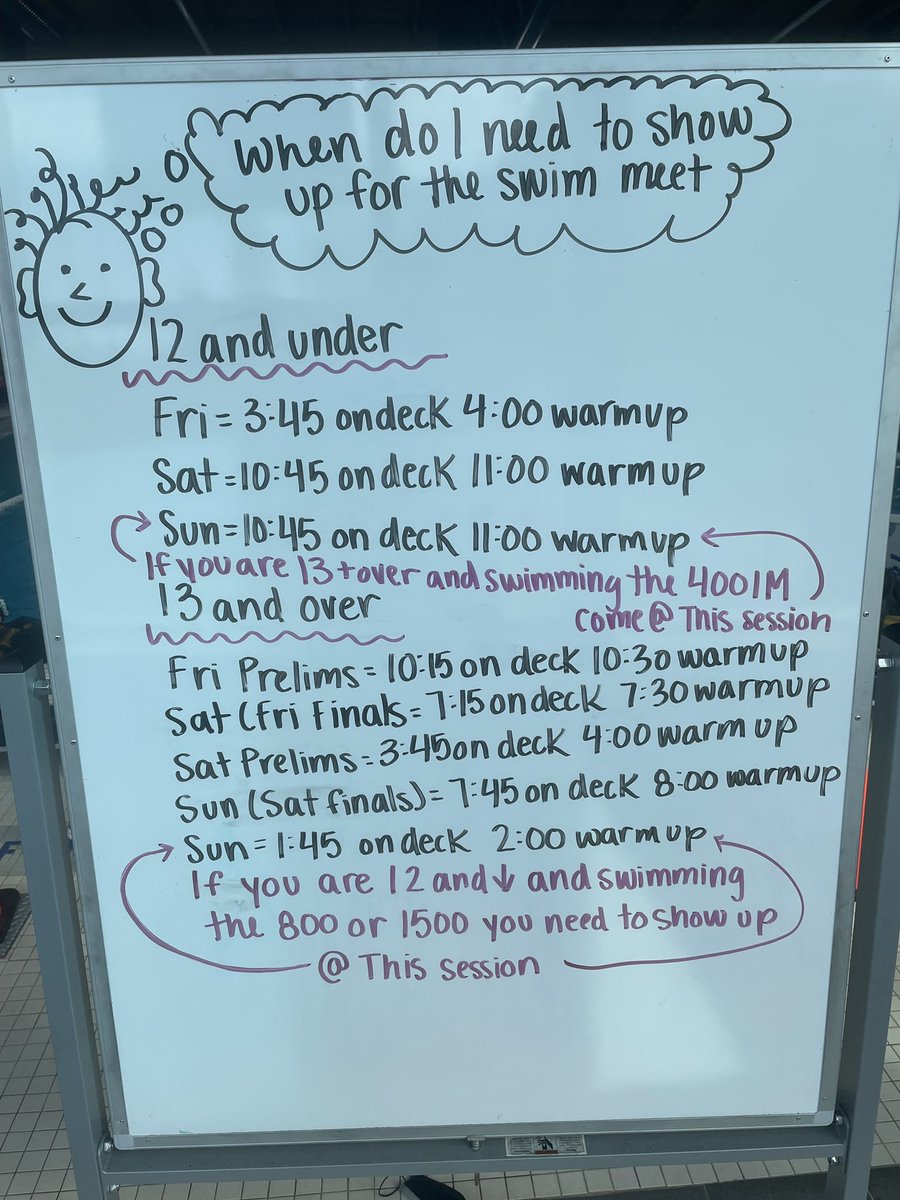 When do I need to show
up for the swim meet
12 and under
Fri = 3:45 on deck 4:00 warmup
Sat = 10:45 on deck 11:00 warmup
Sun = 10:45 on deck 11:00 warmup
If you are 13 + over and swimming the 400 IM
come @ This session
13 and over
Fri Prelims = 10:15 on deck 10:30 warmup
Sat (Fri Finals = 7:15 on deck 7:30 warmup
Sat Prelims = 3:45 on deck 4:00 warm up
Sun (Sat finals) = 7:45 on deck 8:00 warmup
Sun = 1:45 on deck 2:00 warmup
If you are 12 and ↓ and swimming
the 800 or 1500 you need to show up
@ This session